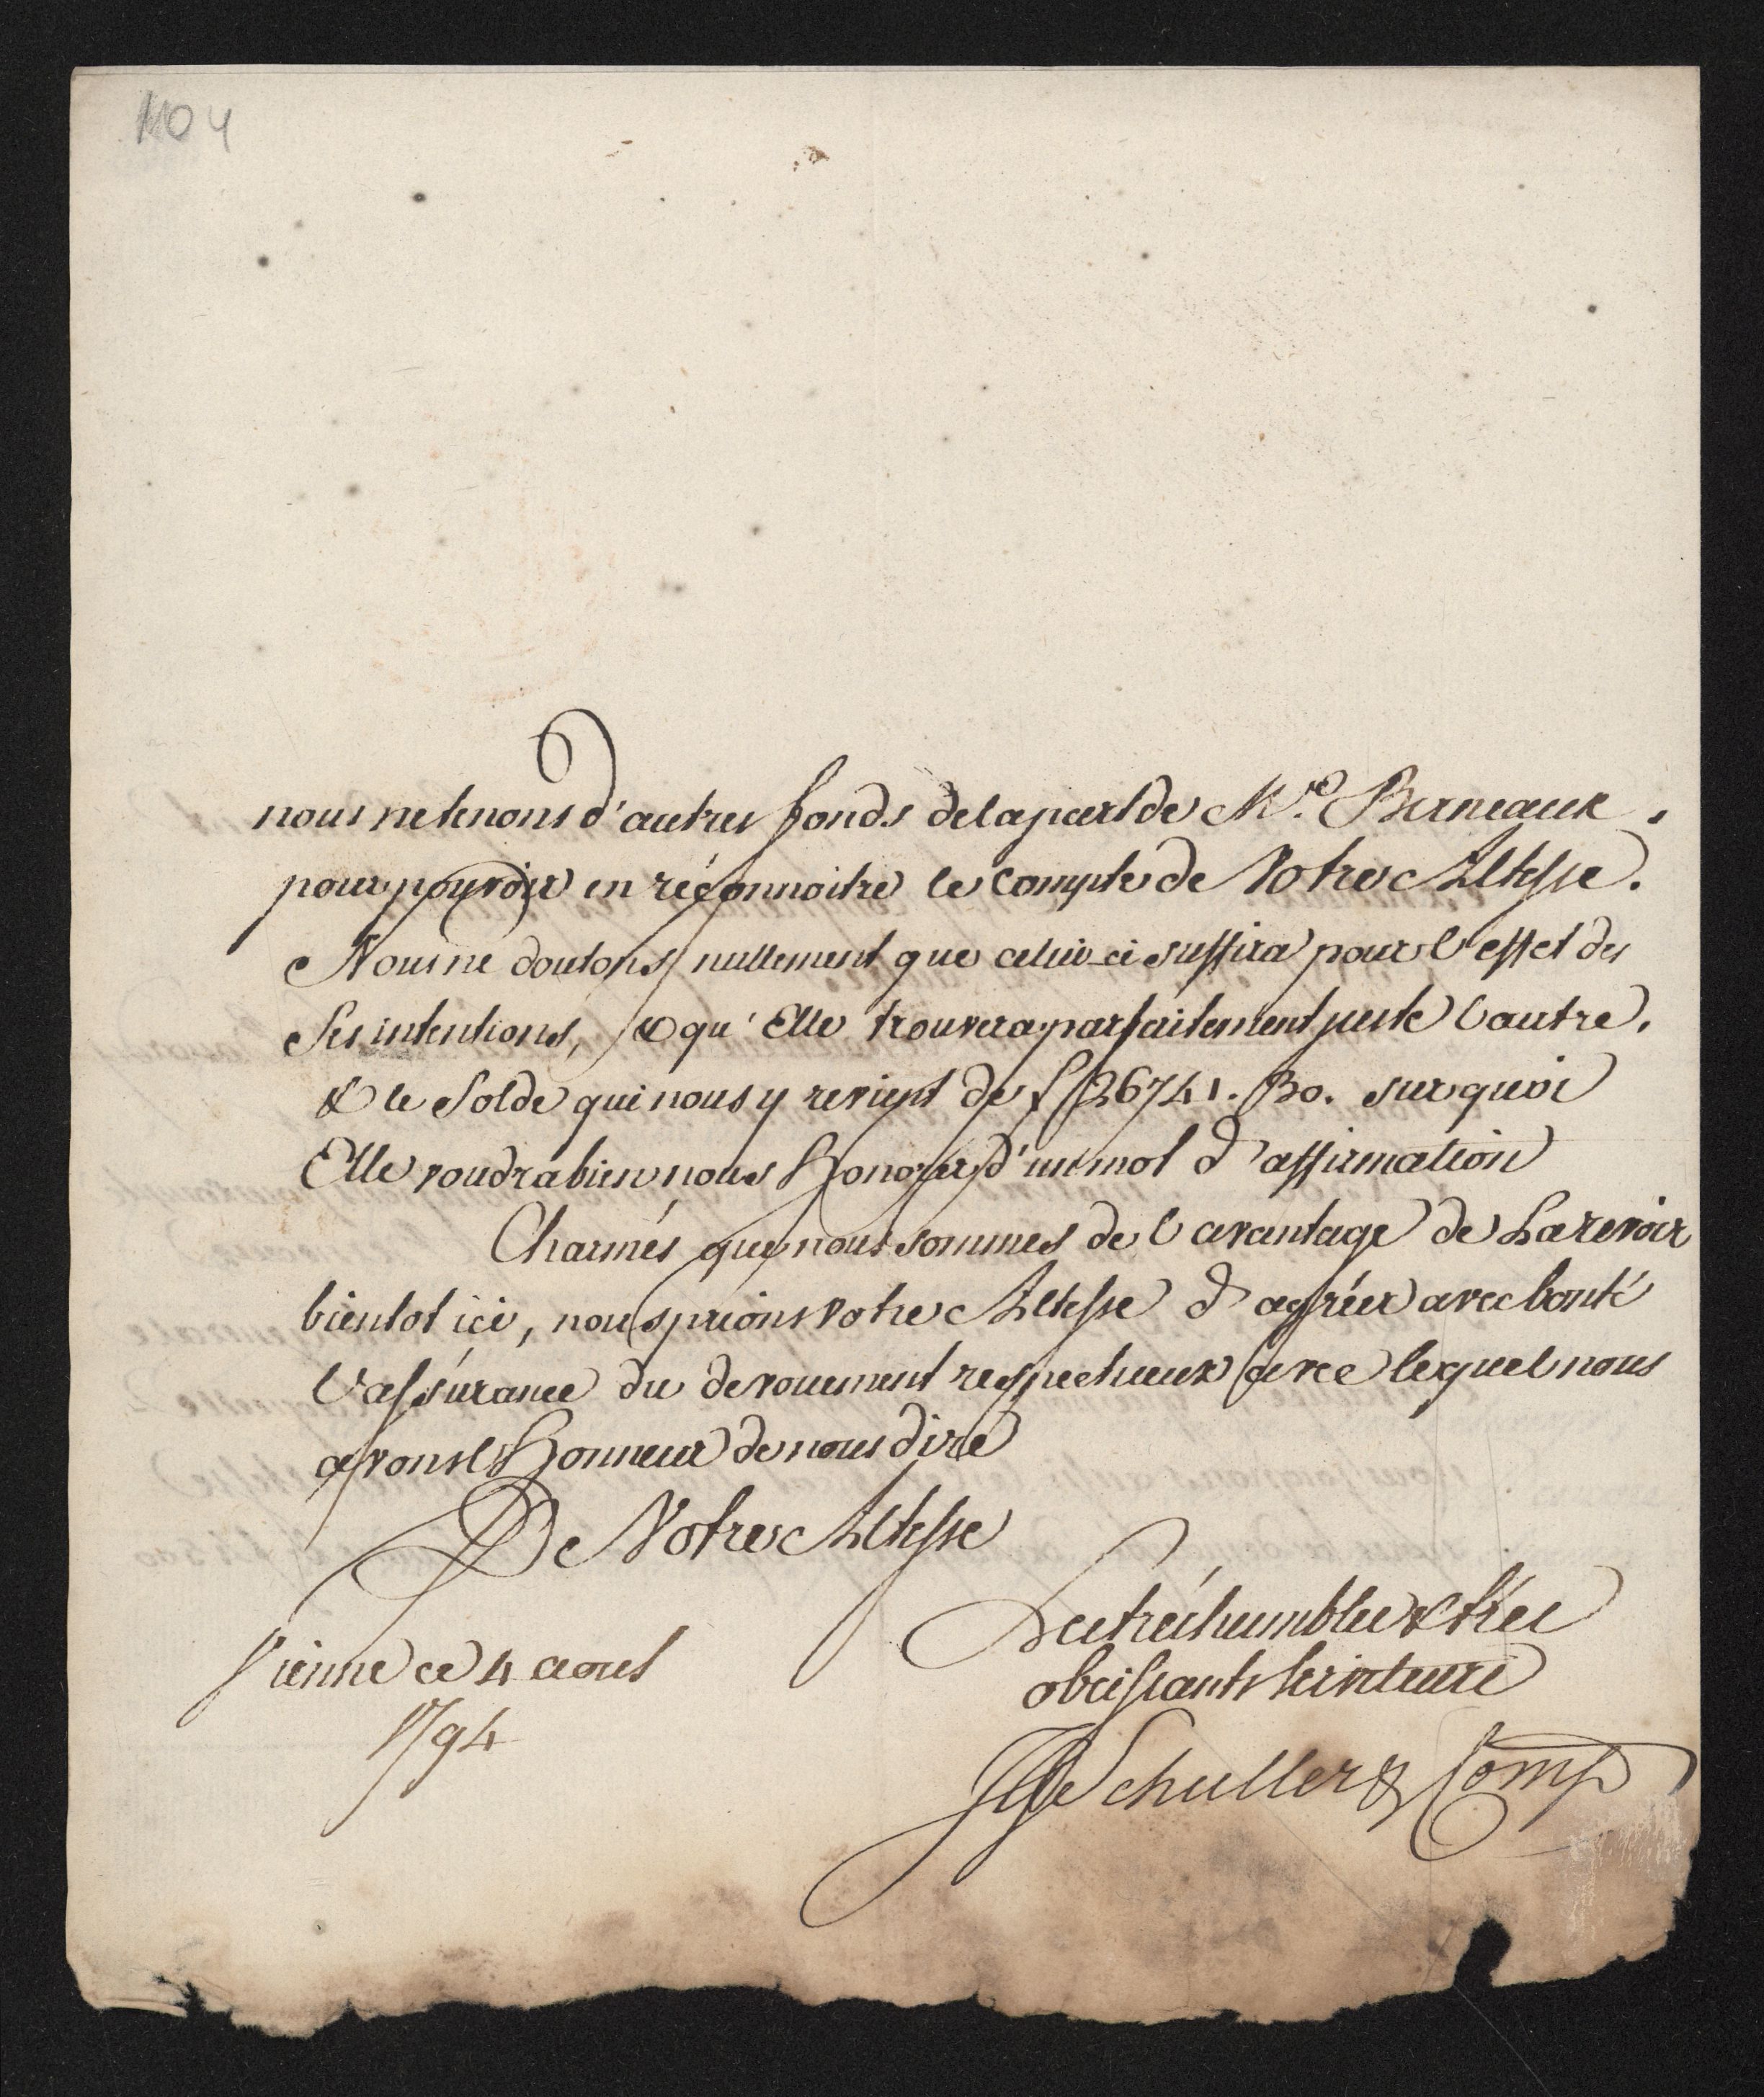 1104
nous ne tenons d'autres fonds de la part de Mr. Berneaux.
pour pouvoir en réconnoitre le Compte de Votre Altesse.
Nous ne doutons nullement que celui-ci suffira pour l'effet des
Ses intentions, & qu'Elle trouvera parfaitement juste l'autre,
& le Solde qui nous y revient de f 26741. 30. sur quoi
Elle voudra bien nous Honorer d'un mot d'affirmation
Charmés que nous sommes de l'avantage de La revoir
bientot ici, nous prions Votre Altesse d'agréer avec bonté
l'assurance du devouement respectueux avec lequel nous
avons l'Honneur de nous dire
De Votre Altesse
Les trés humbles & trés
obeissants serviteurs
Vienne ce 4 aout
1794
Schuller & Comp